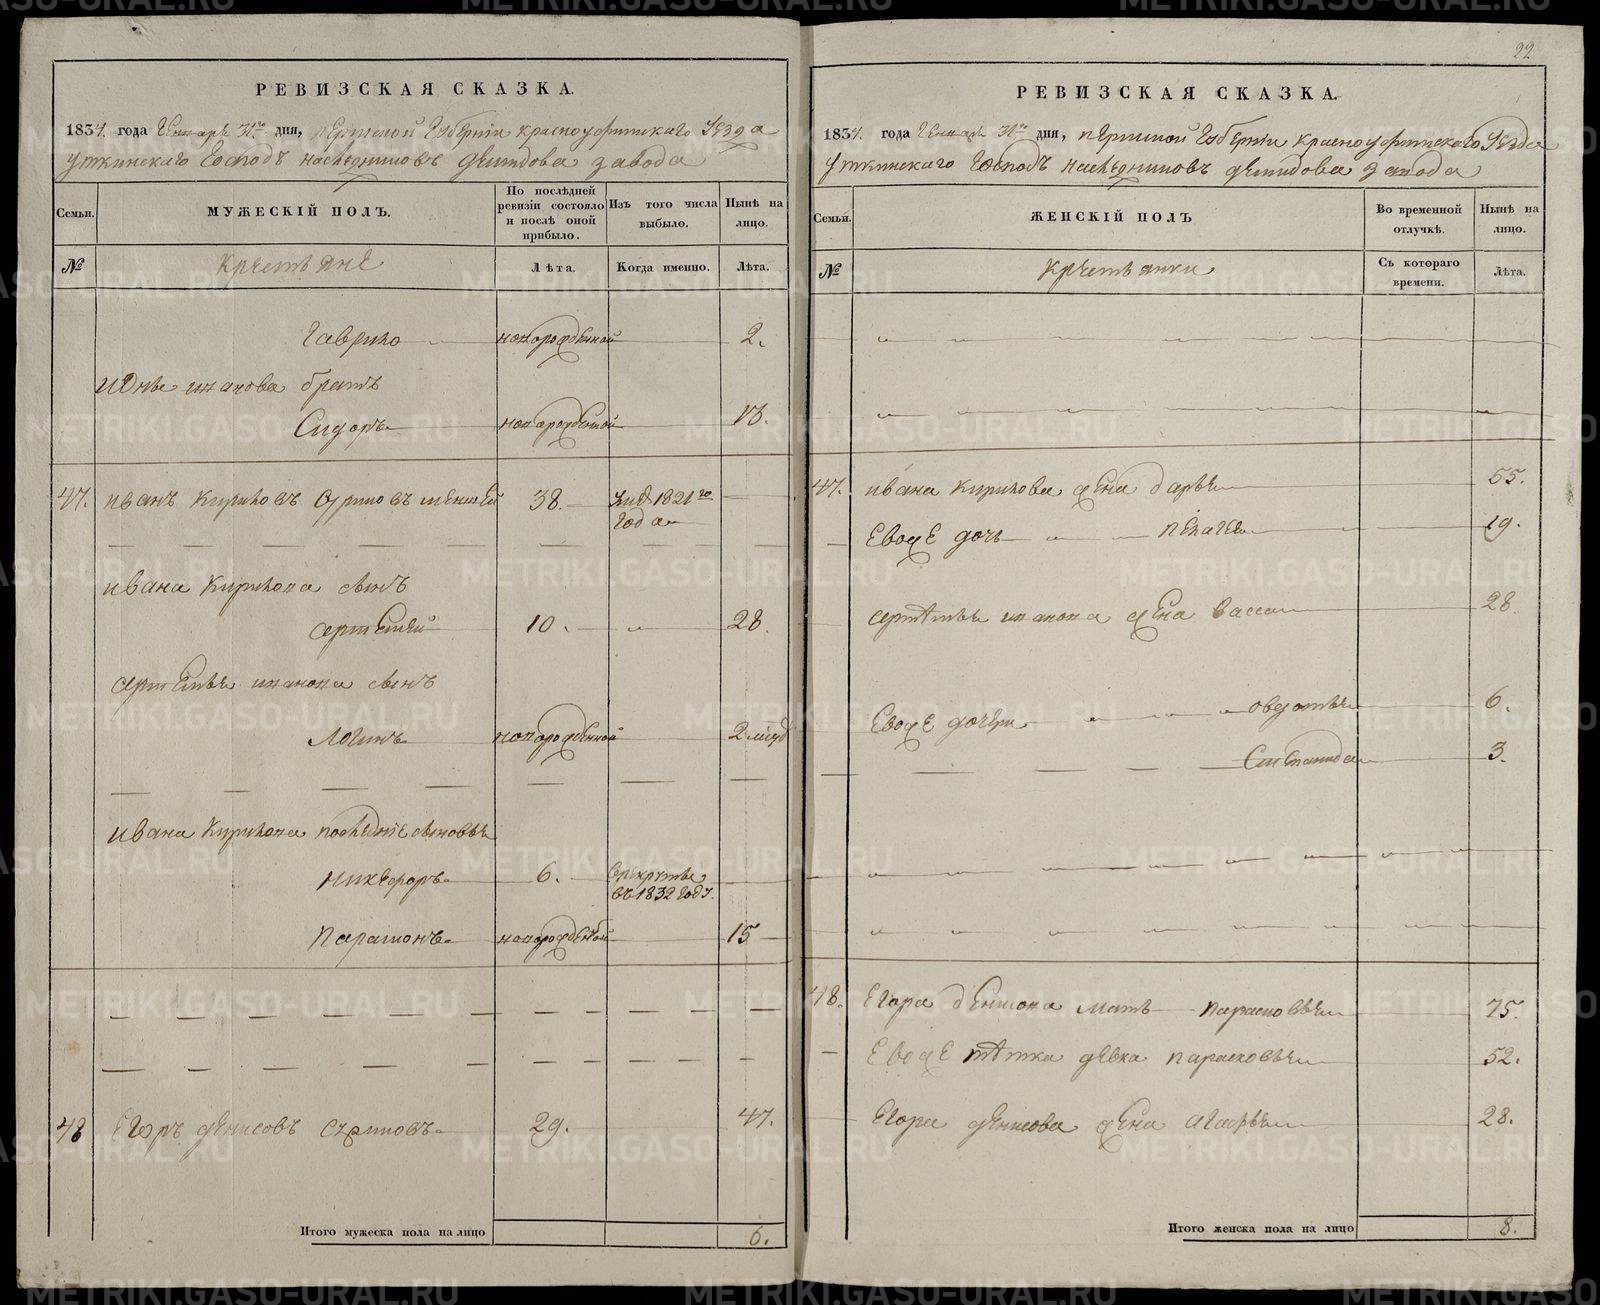 22
РЕВИЗСКАЯ СКАЗКА.
1834. года Генваря 31го дня, Пермской Губернии Красноуфимскаго Уезда
Уткинскаго Господъ наследниковъ Демидова завода
Семьи.
МУЖЕСКІЙ ПОЛЪ.
По послѣдней ревизіи состояло и послѣ оной прибыло.
Изъ того числа выбыло.
Нынѣ на лицо.
№
Крестьяне
Лѣта.
Когда именно.
Лѣта.
Гаврило новорожденной 2.
Ивана брать
Сидоръ новорожденной 13.
47. Иванъ Кириловъ меншей 38. 1821го
года
Ивана Кирилова сынъ
Артемей 10. 28.
Артемья Иванова сынъ
Логинъ новорожденной 2
Ивана Кирилова последніе сыновья
Никефоръ 6. въ рекруты
въ 1832 году.
Парамонъ новорожденной 15
48 Егоръ Денисовъ 29. 47.
Итого мужеска пола на лицо 6.
РЕВИЗСКАЯ СКАЗКА.
1834. года Генваря 31го дня, Пермской Губернии Красноуфимскаго Уезда
Уткинскаго Господъ наследниковъ Демидова завода
Семьи.
ЖЕНСКІЙ ПОЛЪ
Во временной отлучкѣ.
Нынѣ на лицо.
№
Крестьянки
Съ котораго времени.
Лѣта.
47. Ивана Кирилова жена Дарья 55.
Евоже дочь Пелагея 19.
Артемья Иванова жена Васса 28.
Евоже дочери Овдотья 6.
Степанида 3.
48. Егора Денисова мать Парасковья 75.
Евоже тѣтка девка Парасковья 52.
Егора Денисова жена Агафья 28.
Итого женска пола на лицо 8.
METRIKI.GASO-URAL.RU